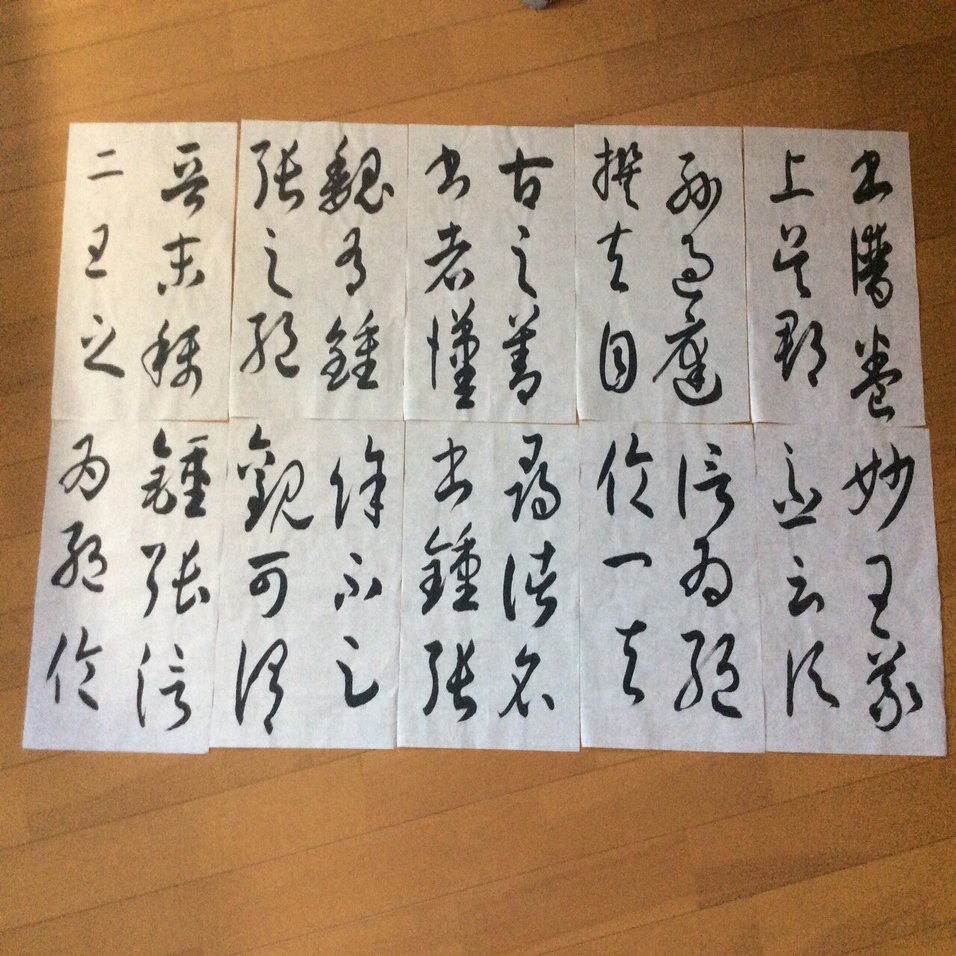 書譜卷
上吳郡
孫過庭
撰夫自
古之善
書者漢
魏有鍾
張之絕
晉末稱
二王之
妙王羲
之云頃
信為絕
倫其
尋諸名
書鍾張
餘不足
觀可謂
鍾張信
為絕倫